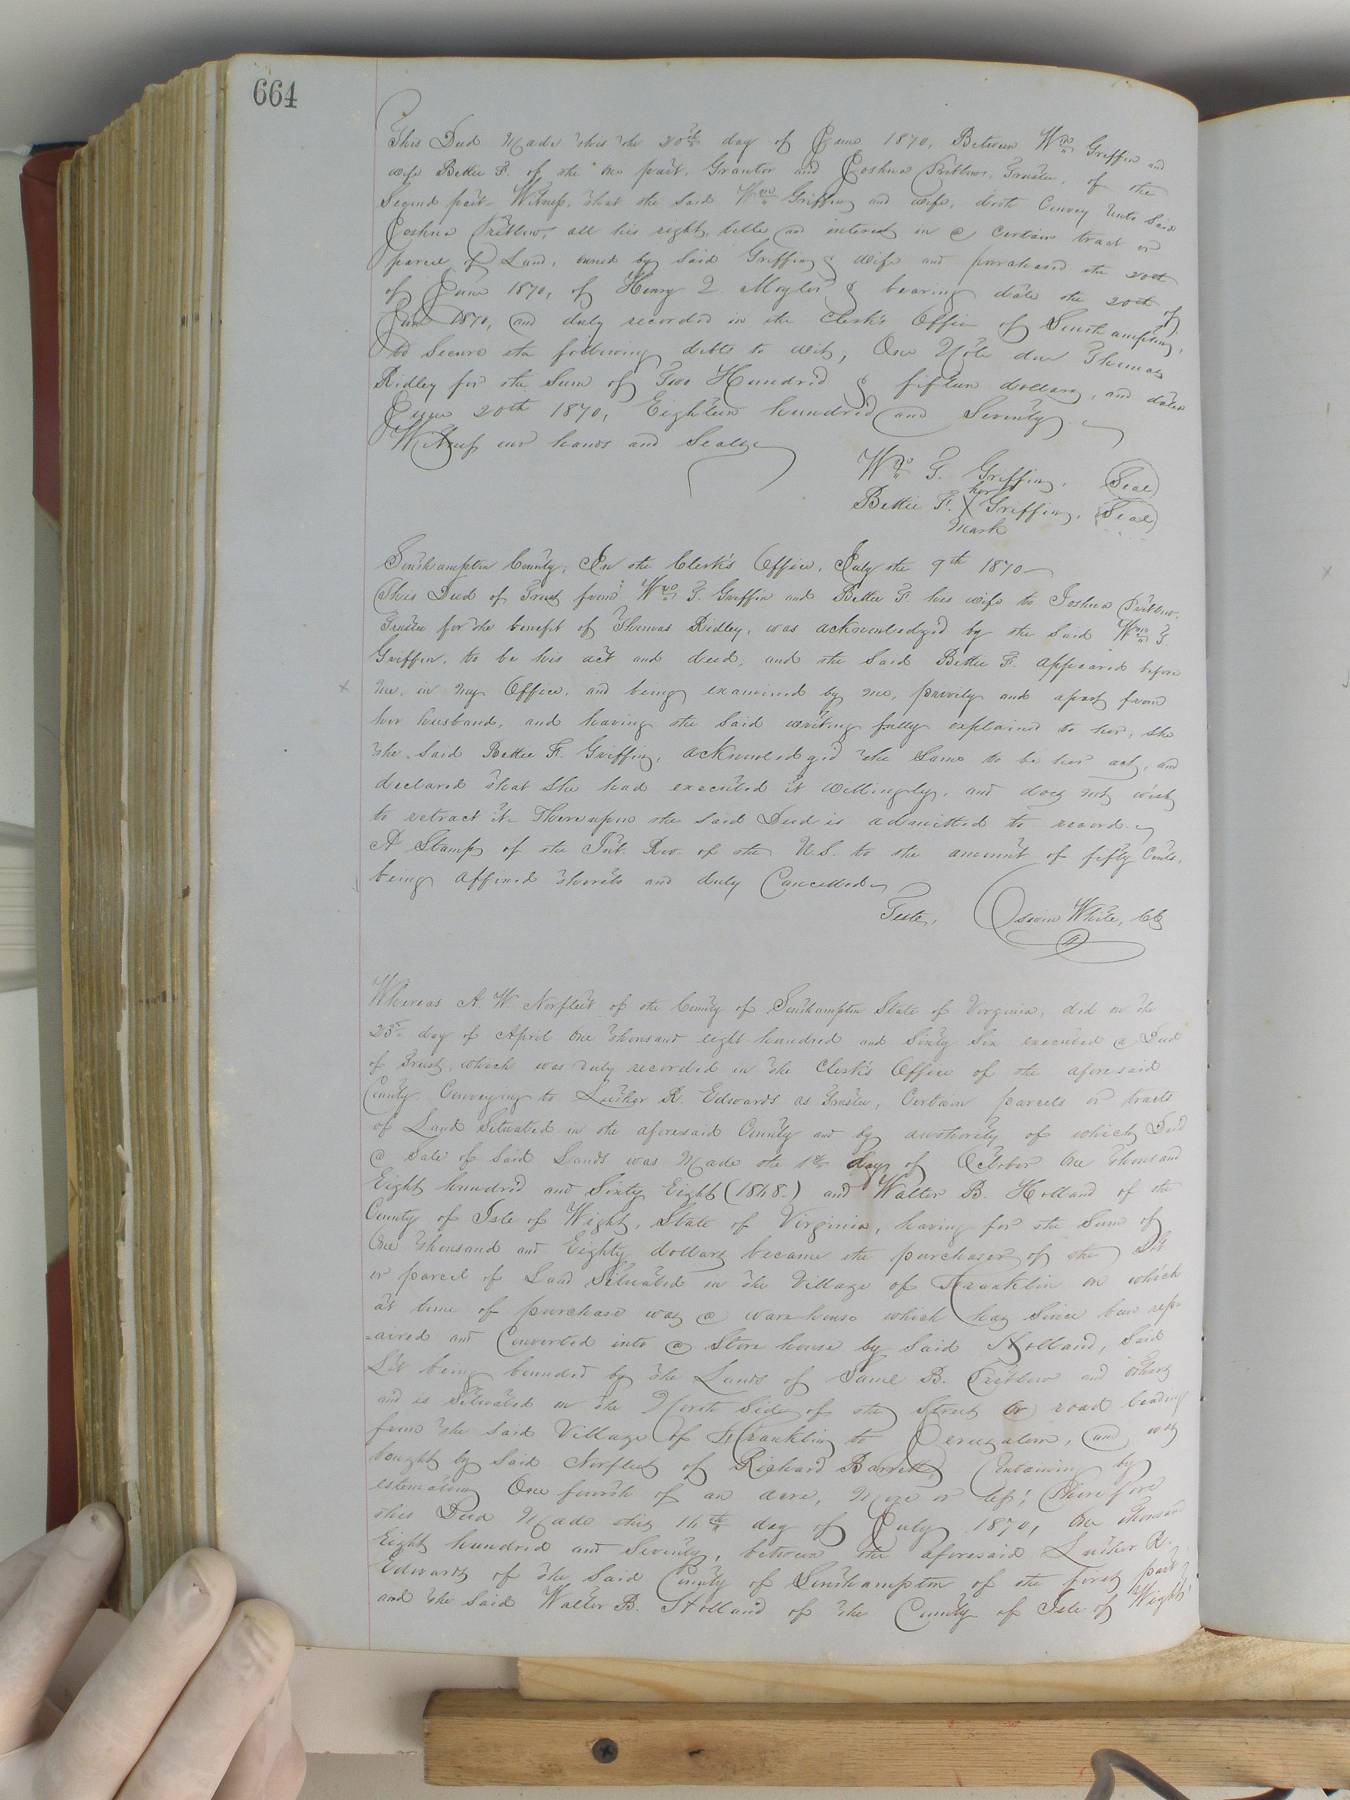 664
This Deed Made this the 20th day of June 1870, Between Wm Griffin and
wife Bettie F. of the one part, Grantor and Joshua Pretlow, Trustee, of the
Second part- Witness, that the said Wm Griffin and wife, doth Convey unto said
Joshua Pretlow, all his right, title and interest in a certain tract or
parcel of Land, owned by said Griffin & wife and purchased the 20th
of June 1870, of Henry Q. Moyler & bearing date the 20th of
June 1870, and duly recorded in the Clerk's Office of Southampton,
to Secure the following debts to wit, One Note due Thomas
Ridley for the Sum of Two Hundred & fifteen dollars, and dated
June 20th 1870, Eighteen hundred and Seventy
Witness our hands and Seals
Wm T. Griffin, (Seal)
her
Bettie F. X Griffin, (Seal)
mark
Southampton County, In the Clerk's Office, July the 9th 1870
This Deed of Trust from Wm T. Griffin and Bettie F. his wife to Joshua Pretlow,
Trustee for the benefit of Thomas Ridley, was acknowledged by the said Wm T.
Griffin, to be his act and deed, and the said Bettie F. appeared before
me, in my Office, and being examined by me, privily and apart from
her husband, and having the said writing fully explained to her, she
the said Bettie F. Griffin, acknowledged the same to be her act, and
declared that she had executed it willingly, and does not wish
to retract it. Thereupon the said Deed is admitted to record.
A Stamp of the Int. Rev. of the U.S. to the amount of fifty Cents,
being affixed thereto and duly Cancelled
Teste, Oswin White, CC
Whereas A. W. Norfleet of the County of Southampton State of Virginia, did on the
23rd day of April One thousand eight hundred and Sixty Six executed a Deed
of Trust, which was duly recorded in the Clerk's Office of the aforesaid
County Conveying to Luther R. Edwards as Trustee, Certain parcels or tracts
of Land Situated in the aforesaid County and by authority of which Deed
a Sale of Said Lands was Made the 1st day of October One Thousand
Eight hundred and Sixty Eight (1868.) and Walter B. Holland of the
County of Isle of Wight, State of Virginia, having for the Sum of
One thousand and Eighty dollars became the purchaser of the Lot
or parcel of Land Situated in the Village of Franklin on which
at time of purchase was a warehouse which has Since been rep-
=aired and Converted into a Store house by Said Holland, Said
Lot being bounded by the Lands of Saml B. Pretlow and others
and is Situated on the North Side of the Street or road leading
from the Said Village of Franklin to Jerusalem, and was
bought by Said Norfleet of Richard Barrett, Containing by
estimation One fourth of an acre, More or less; Therefore
this Deed Made this 14th day of July 1870, One Thousand
Eight hundred and Seventy, between the aforesaid Luther R.
Edwards of the Said County of Southampton of the first part
and the Said Walter B. Holland of the County of Isle of Wight